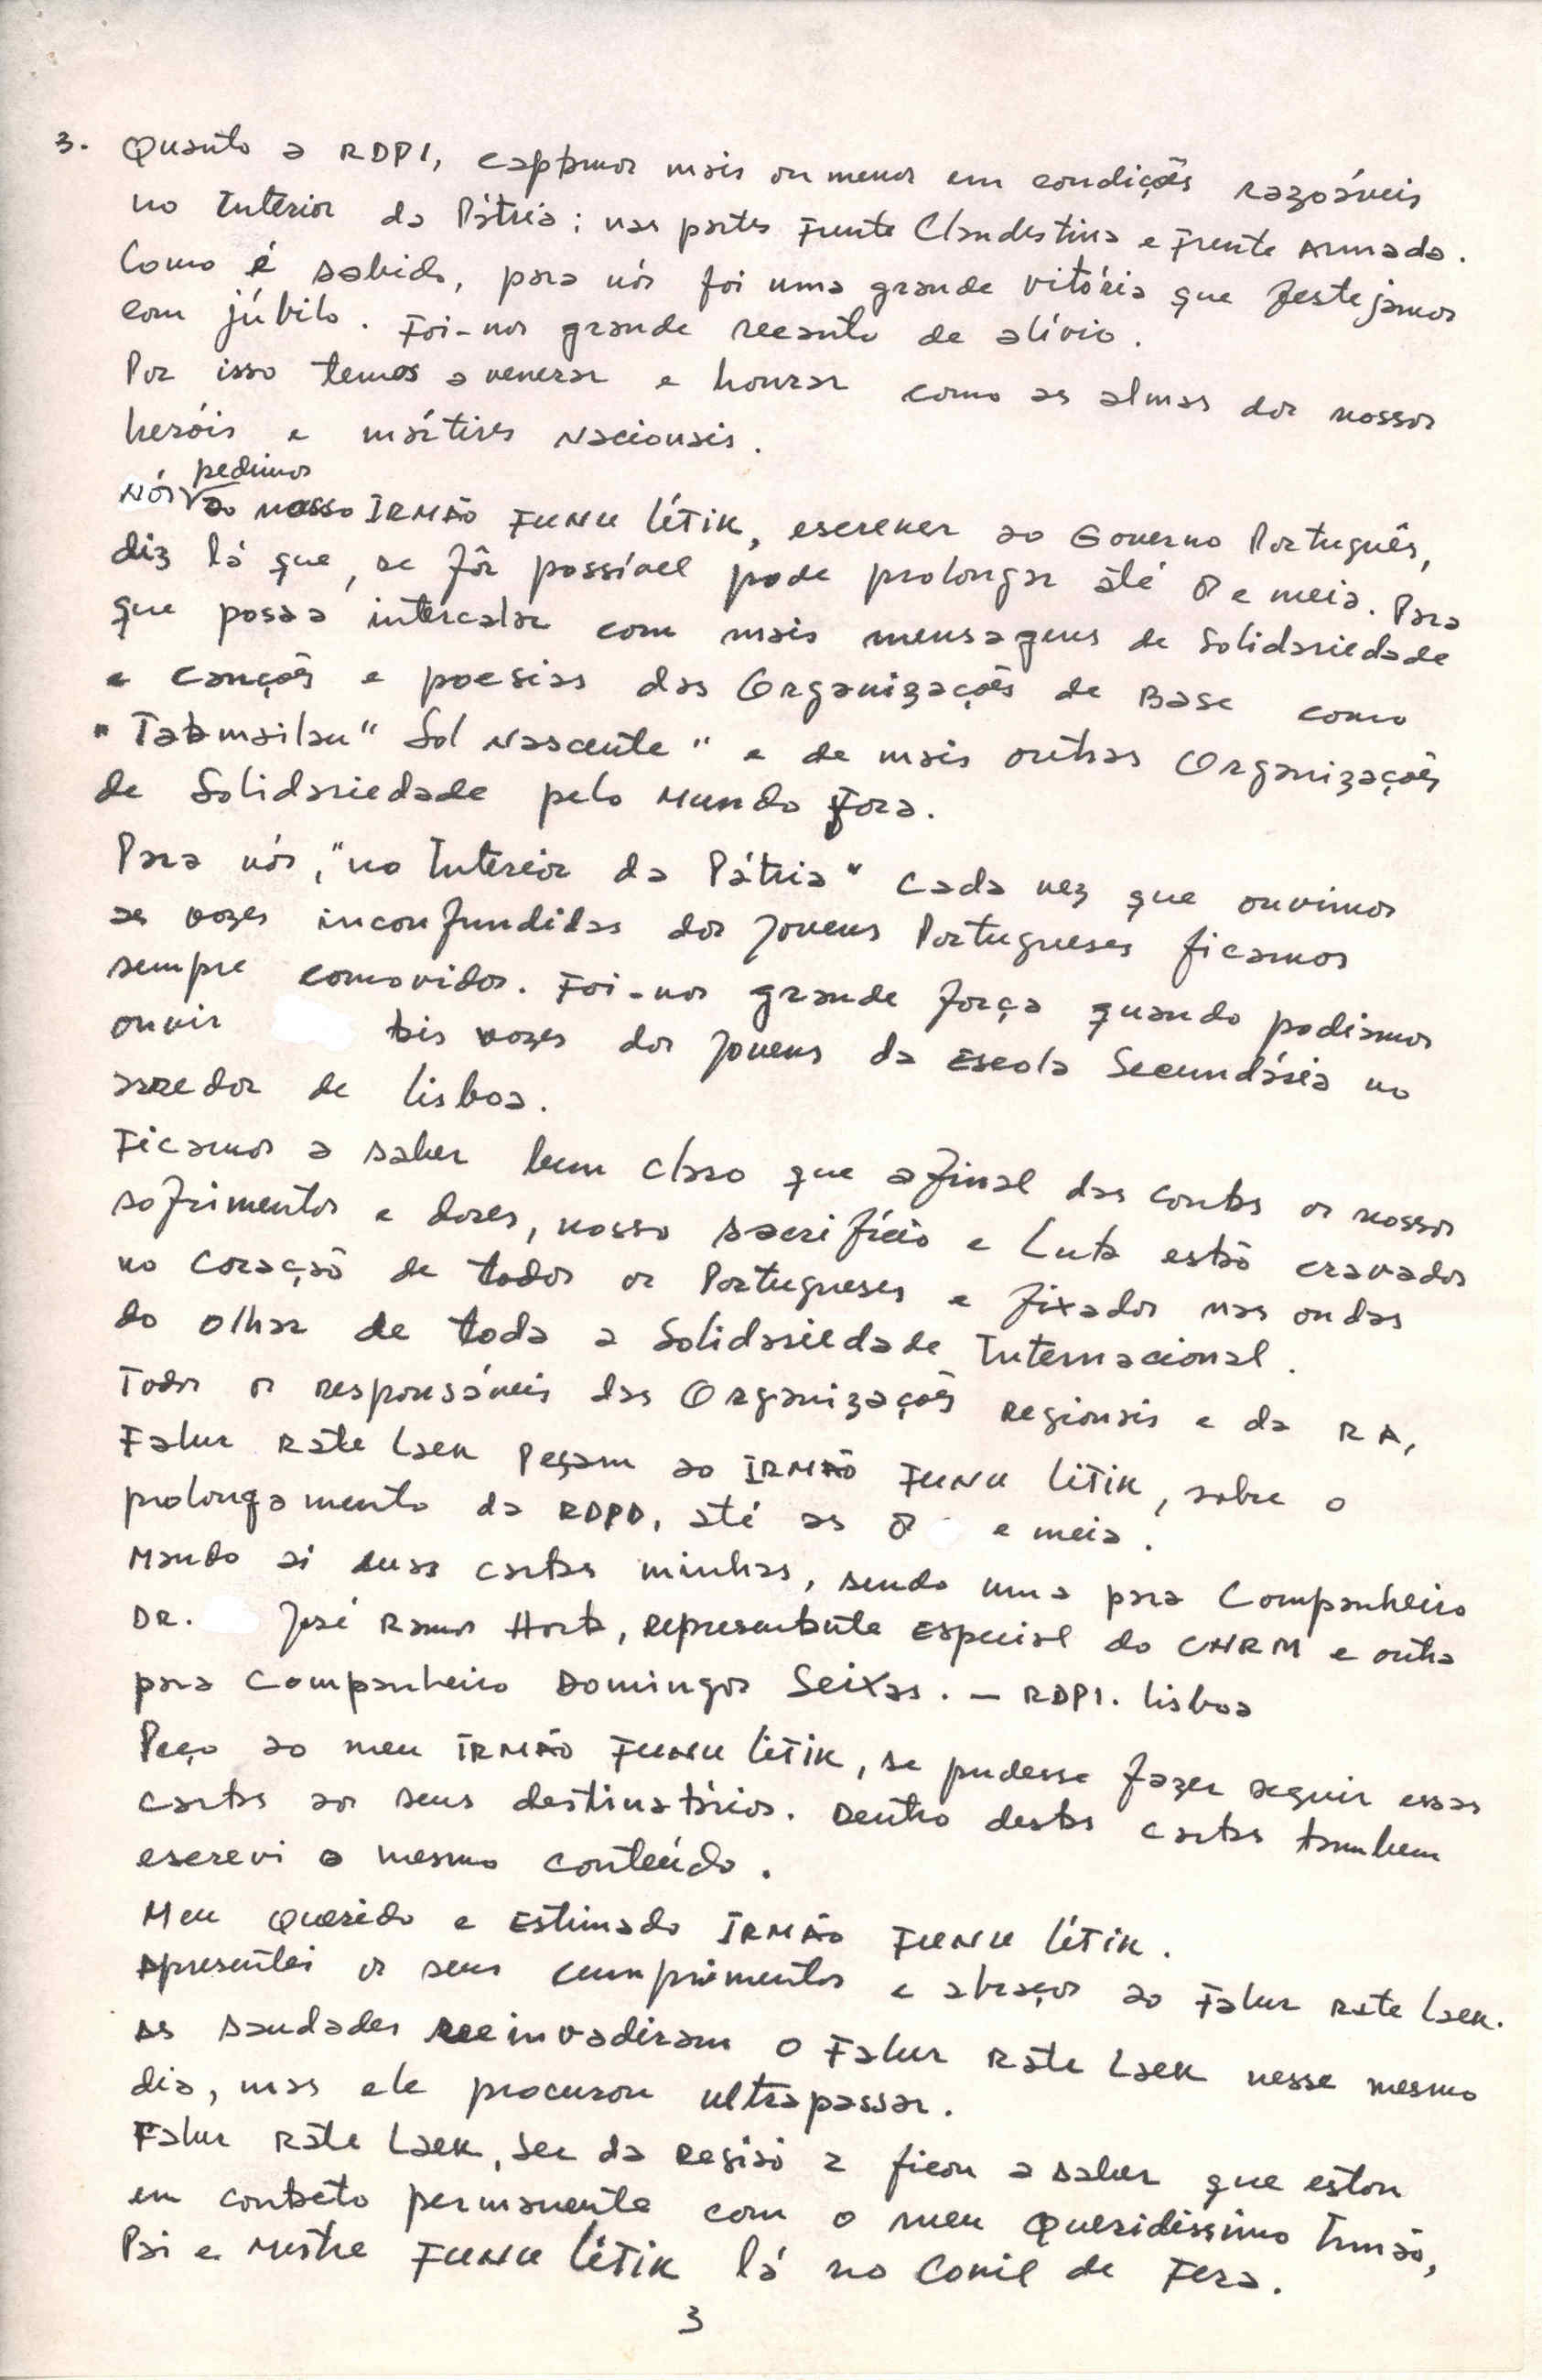 3. Quanto a RDPI, captamos mais ou menos em condições razoáveis
no Interior da Pátria: nas partes Frente Clandestina e Frente Armada.
Como é sabido, para nós foi uma grande vitória que festejamos
com júbilo. Foi-nos grande recanto de alívio.
Por isso temos a venerar e honrar como as almas dos nossos
heróis e mártires Nacionais.
pedimos
Nós ao nosso IRMÃO FUNU LÉTIK, escrever ao Governo Português,
diz lá que, se fôr possível pode prolongar até 8 e meia. Para
que possa intercalar com mais mensagens de Solidariedade
e canções e poesias das Organizações de Base como
"Tatamailau" Sol Nascente" e de mais outras Organizações
de Solidariedade pelo Mundo Fora.
Para nós, "no Interior da Pátria" cada vez que ouvimos
as vozes inconfundidas dos Jovens Portugueses ficamos
sempre comovidos. Foi-nos grande força quando podiamos
ouvir tais vozes dos Jovens da Escola Secundária no
arredor de Lisboa.
Ficamos a saber bem claro que afinal das contas os nossos
sofrimentos e dores, nosso sacrifício e Luta estão cravados
no coração de todos os Portugueses e fixados nas ondas
do olhar de toda a Solidariedade Internacional.
Todos os responsáveis das Organizações Regionais e da RA,
Falur Rate Laek Peçam ao IRMÃO FUNU LÉTIK, sobre o
prolongamento da RDPD, até as 8 e meia.
Mando aí duas cartas minhas, sendo uma para Companheiro
DR. José Ramos Horta, Representante Especial do CNRM e outra
para Companheiro Domingos Seixas. – RDPI. Lisboa
Peço ao meu IRMÃO FUNU LÉTIK, se pudesse fazer seguir essas
cartas aos seus destinatários. Dentro destas cartas tambem
escrevi o mesmo conteúdo.
Meu Querido e Estimado IRMÃO FUNU LÉTIK.
Apresentei os seus cumprimentos e abraços ao Falur Rate Laek.
As saudades reeinvadiram o Falur Rate Laek nesse mesmo
dia, mas ele procurou ultrapassar.
Falur Rate Laek, Sec da Região 2 ficou a saber que estou
em contacto permanente com o meu Queridíssimo Irmão,
Pai e Mestre FUNU LÉTIK lá no Covil de Fera.
3